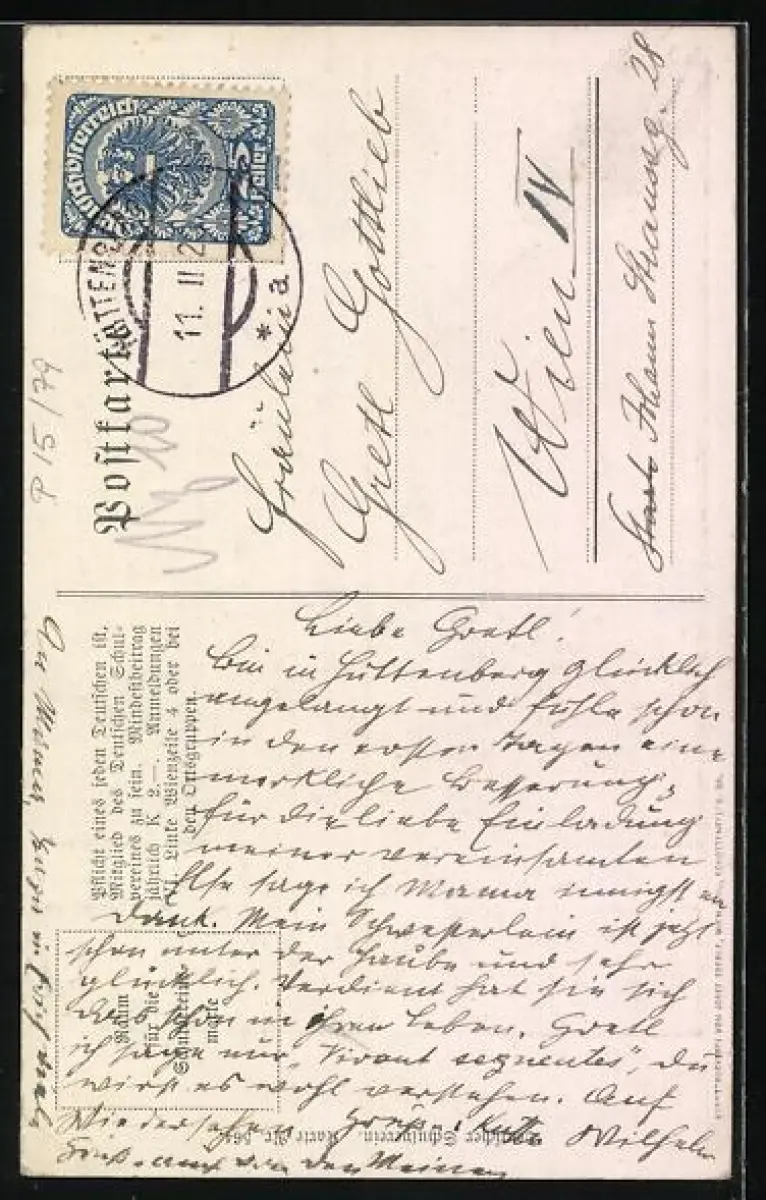 Postkarte
Deutschösterreich
25 Heller
HÜTTENBERG
11. II 2
* a
P 15/79
Fräulein
Gretl Gottlieb
Wien IV
Johann Straussg. 28
Pflicht eines jeden Deutschen ist,
Mitglied des Deutschen Schul-
vereines zu sein. Mindestbeitrag
jährlich K 2.—. Anmeldungen
Linke Wienzeile 4 oder bei
den Ortsgruppen.
Raum
für die
Schulvereins-
marke
Liebe Gretl!
Bin in Hüttenberg glücklich
angelangt und fühle schon
in den ersten Tagen eine
merkliche Besserung,
für die liebe Einladung
meiner vereinsamten
Else sage ich Mama innigst
Dank. Mein Schwesterlein ist jetzt
schon unter der Haube und sehr
glücklich. Verdient hat sie sich
das schon in ihren Leben. Gretl
ich sage nur „Vivant sequentes", Du
wirst es wohl verstehen. Auf
Wiedersehen Wilhelm
von den Meinen
Deutscher Schulverein. Karte Nr.